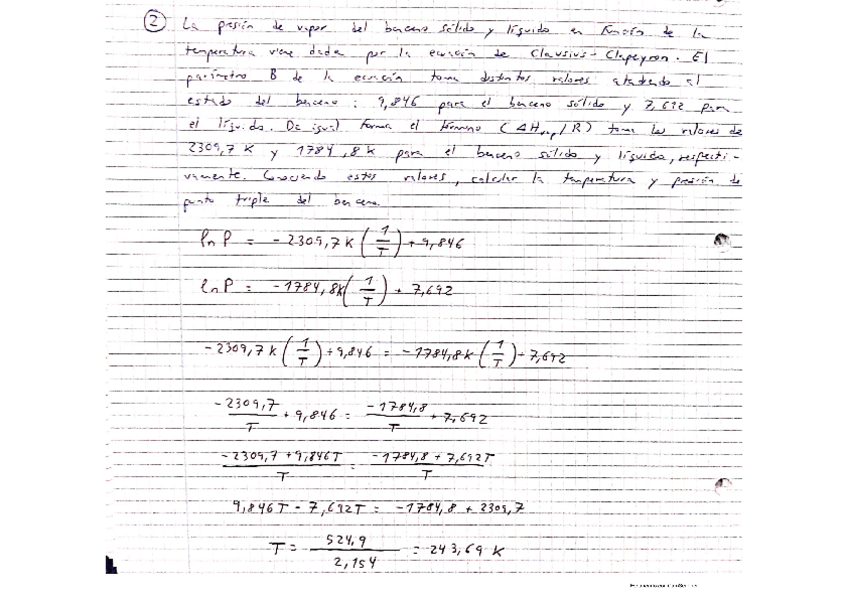 ② La presión de vapor del benceno sólido y líquido en función de la
temperatura viene dada por la ecuación de Clausius-Clapeyron. El
parámetro B de la ecuación toma distintos valores atendendo al
estado del benceno: 9,846 para el benceno sólido y 7,692 para
el líquido. De igual forma el término (ΔHvap/R) toma los valores de
2309,7 K y 1784,8 K para el benceno sólido y líquido, respecti-
vamente. Conociendo estos valores, calcular la temperatura y presión de
punto triple del benceno.
ln P = -2309,7 K (1/T) + 9,846
ln P = -1784,8K (1/T) + 7,692
-2309,7 K (1/T) + 9,846 = -1784,8 K (1/T) + 7,692
-2309,7/T + 9,846 = -1784,8/T + 7,692
(-2309,7 + 9,846T)/T = (-1784,8 + 7,692T)/T
9,846T - 7,692T = -1784,8 + 2309,7
T = 524,9/2,154 = 243,69 K